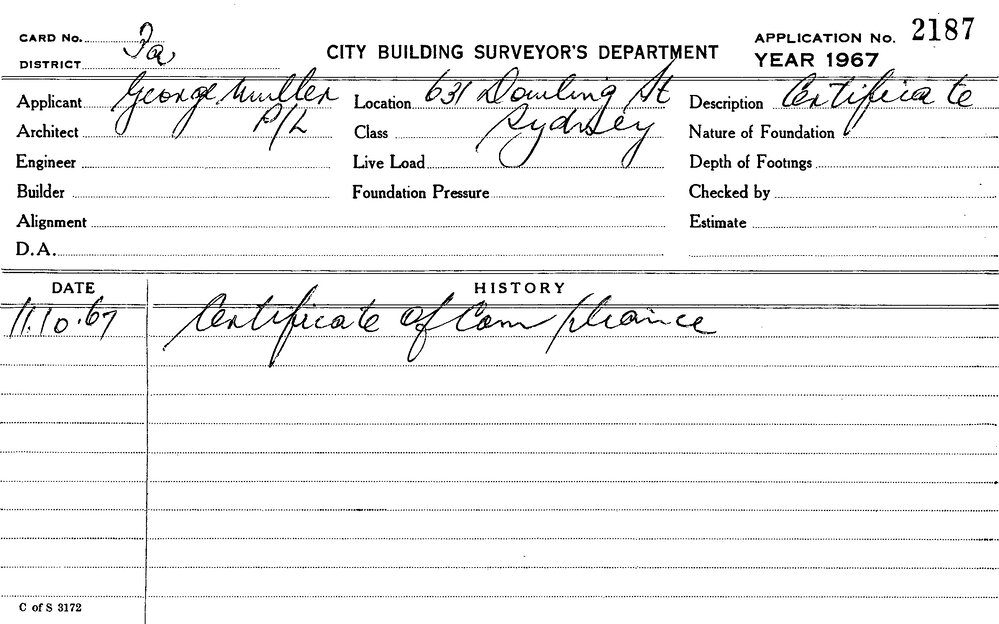 CARD No. 7a
DISTRICT
CITY BUILDING SURVEYOR'S DEPARTMENT
APPLICATION No. 2187
YEAR 1967
Applicant George Muller Location 631 Dowling St Description Certificate
Architect P/L Class Sydney Nature of Foundation
Engineer Live Load Depth of Footings
Builder Foundation Pressure Checked by
Alignment Estimate
D.A.
DATE HISTORY
11.10.67 Certificate of Compliance
C of S 3172